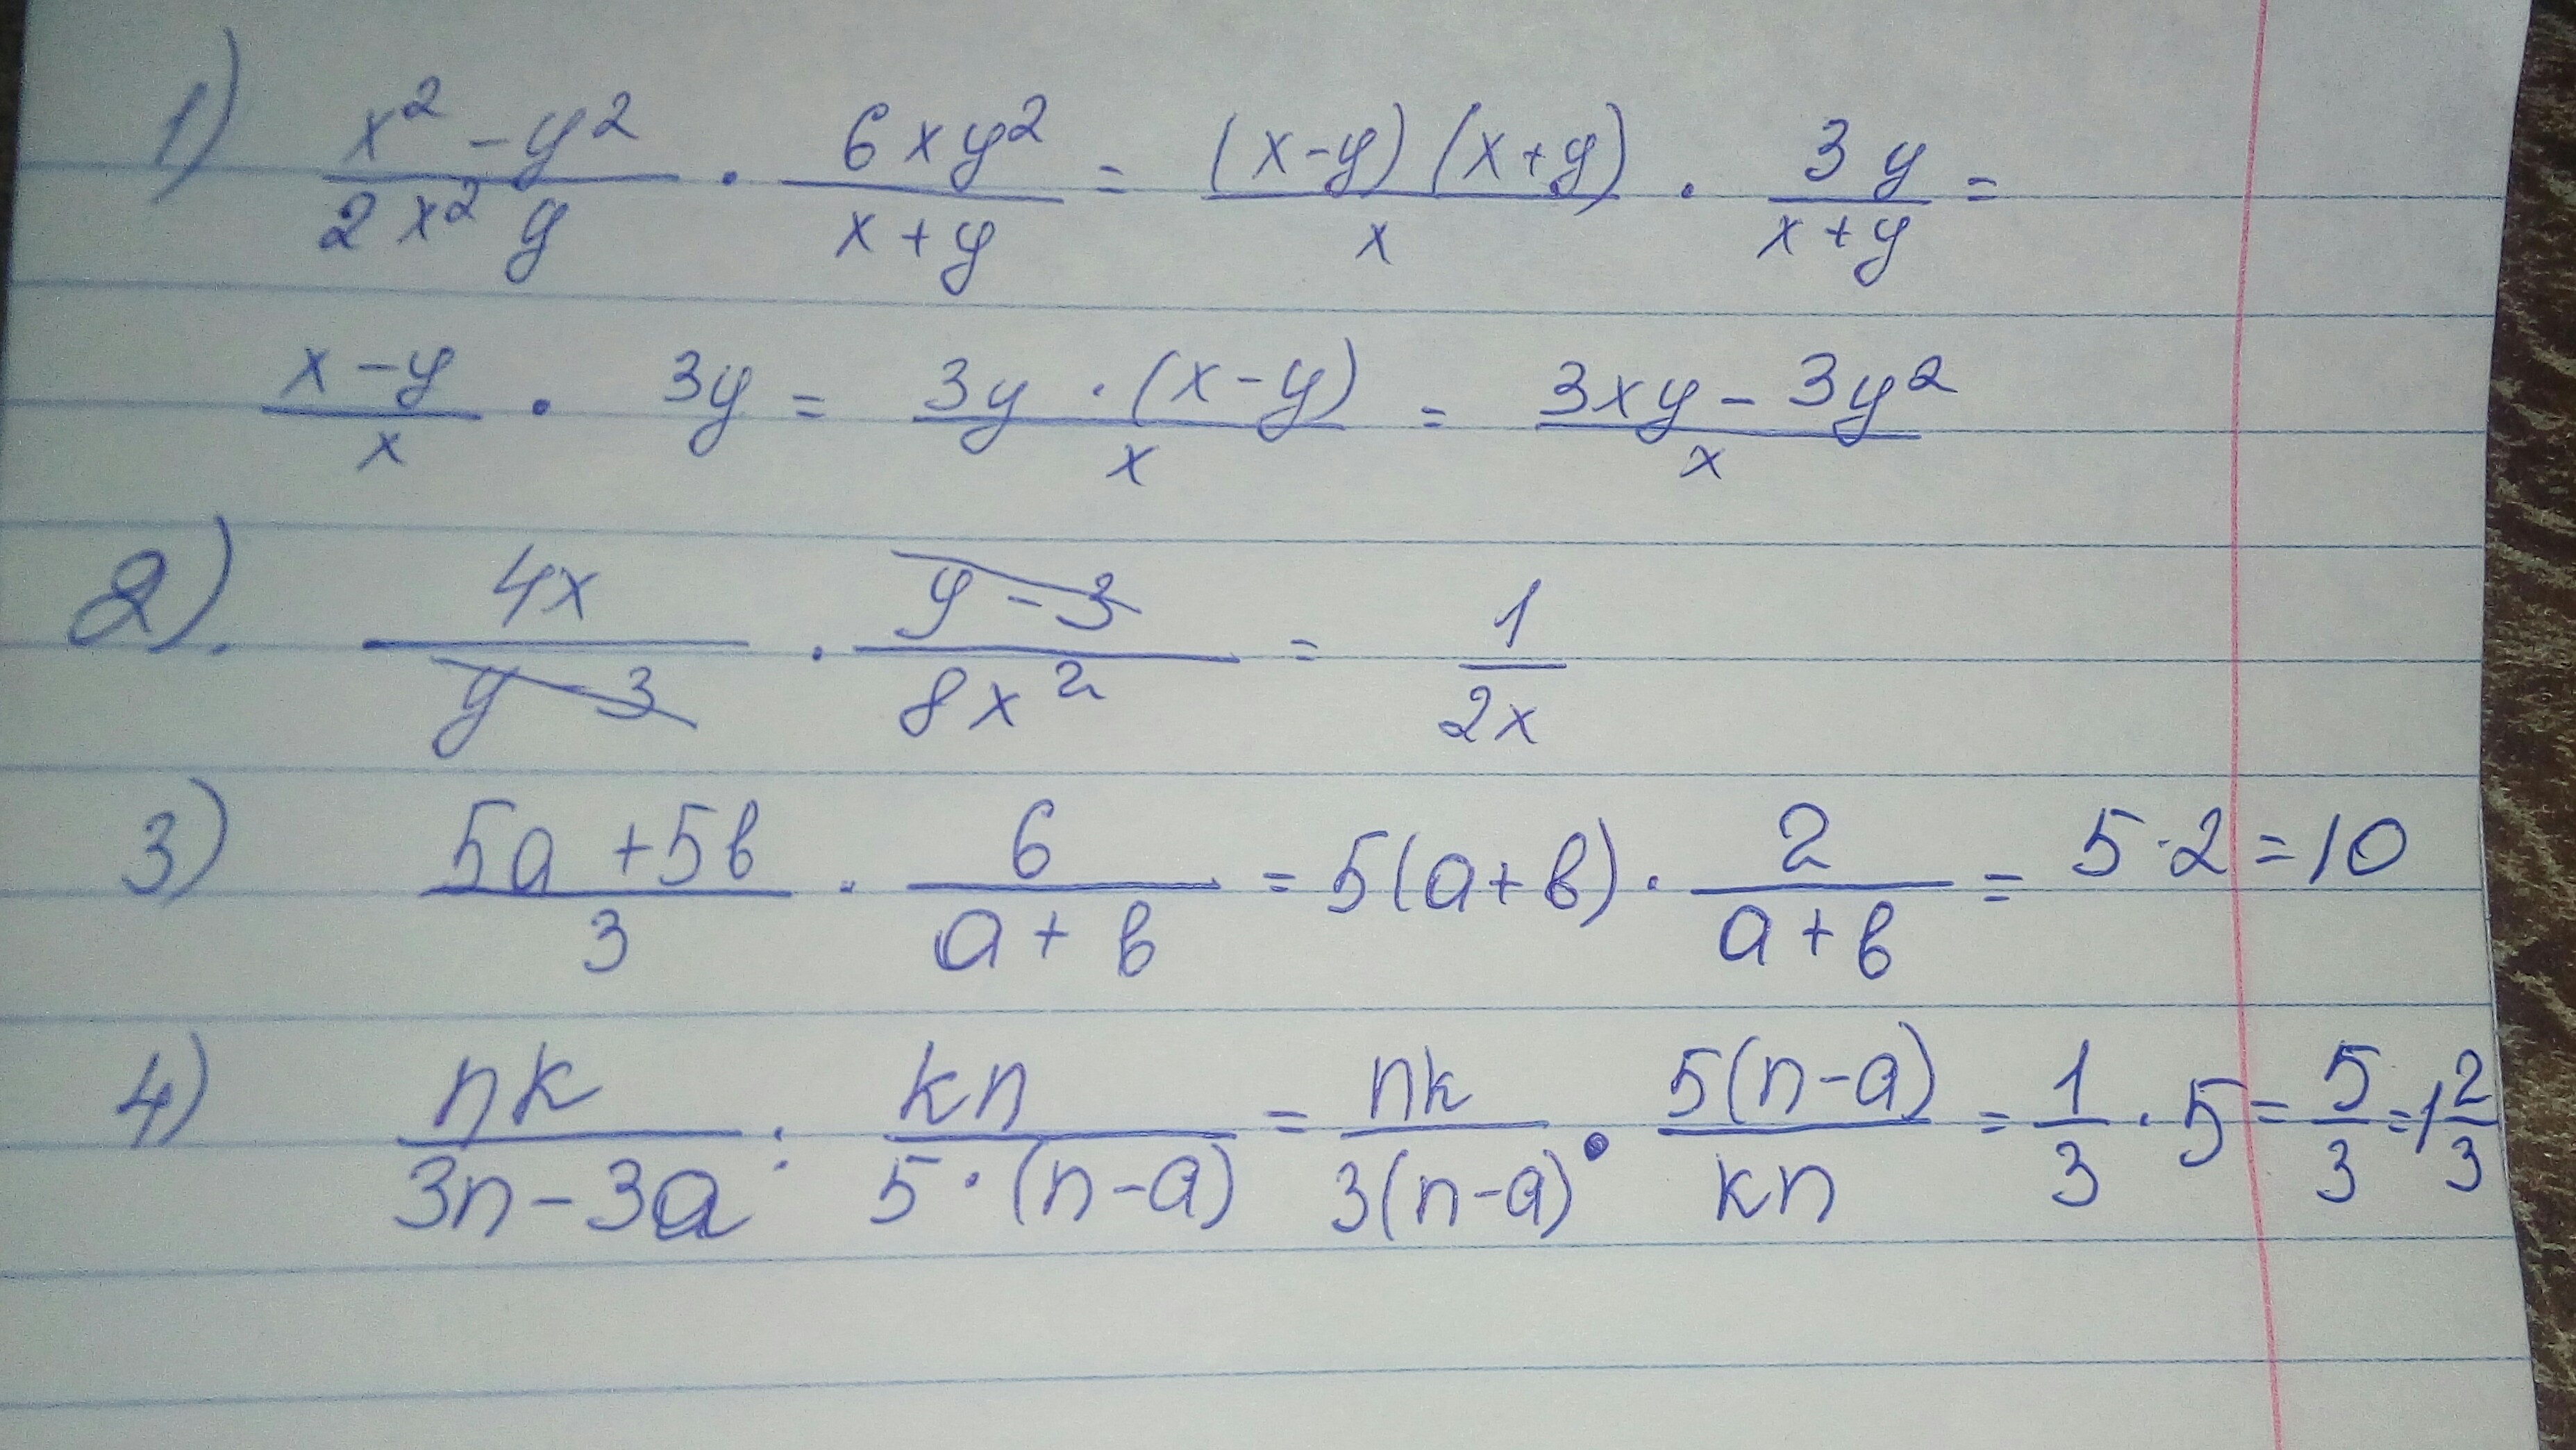 1) \frac{x^2-y^2}{2x^2y} \cdot \frac{6xy^2}{x+y} = \frac{(x-y)(x+y)}{x} \cdot \frac{3y}{x+y} =
\frac{x-y}{x} \cdot 3y = \frac{3y \cdot (x-y)}{x} = \frac{3xy-3y^2}{x}
2). \frac{4x}{y-3} \cdot \frac{y-3}{8x^2} = \frac{1}{2x}
3) \frac{5a+5b}{3} \cdot \frac{6}{a+b} = 5(a+b) \cdot \frac{2}{a+b} = 5 \cdot 2 = 10
4) \frac{nk}{3n-3a} : \frac{kn}{5 \cdot (n-a)} = \frac{nk}{3(n-a)} \cdot \frac{5(n-a)}{kn} = \frac{1}{3} \cdot 5 = \frac{5}{3} = 1\frac{2}{3}